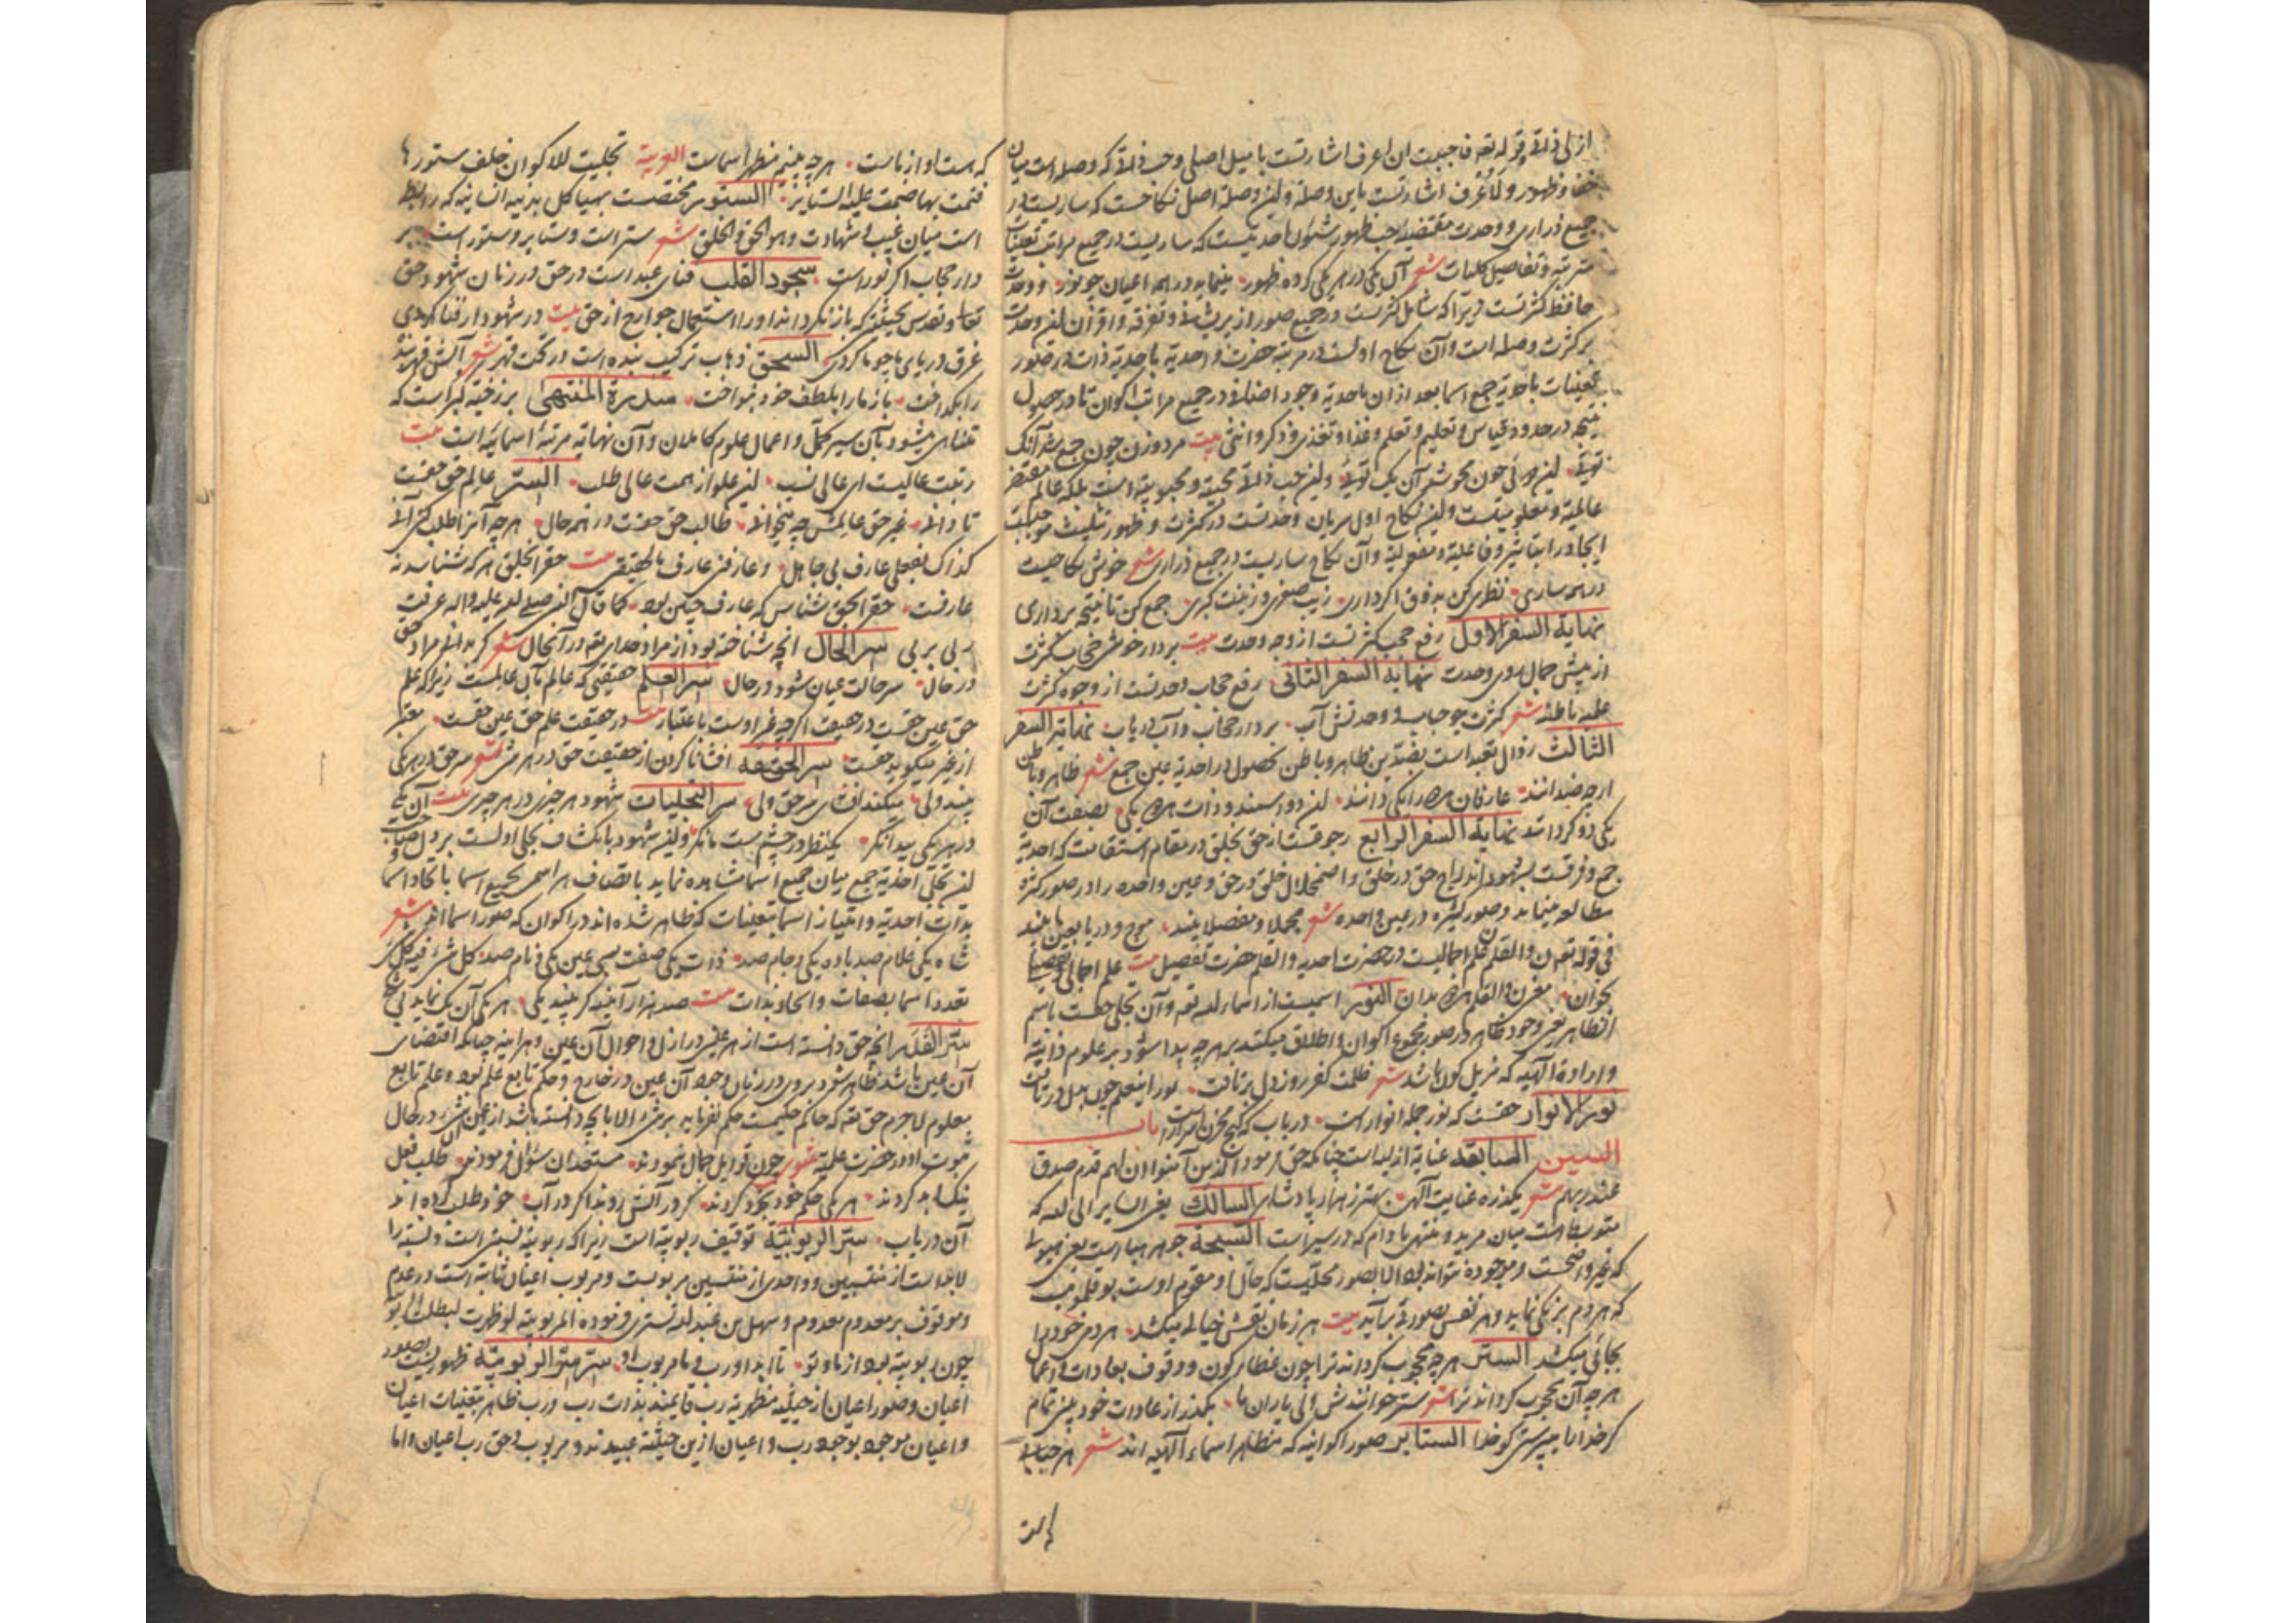 ازلی ذاته و قوله تعه فاحببت ان اعرف اشارتست با میل اصلی و حب ذاته که وصله است میان
خفا و ظهور و لان اعرف اشارتست باین وصله و این وصله اصل نکاحست که ساریست در
جمیع ذراری و وحدت مقتضیه حب ظهور شئون احدیتست که ساریست در جمیع مراتب تعینات
مترتبه و تفاصیل کلیات شعر آن یکی در هر یکی کرده ظهور مینماید در همه اعیان چو نور و وحدت
حافظ کثرتست زیرا که شامل کثرتست در جمیع صور از پریشانی و تفرقه و اقتران این وحدت
بر کثرت وصله است و آن نکاح اولست در مرتبه حضرت واحدیه باحدیة ذات در صور
تعینات باحدیة جمع اسما بعد از آن باحدیة وجود اضافی در جمیع مراتب اکوان تا در حصول
نتیجه در حدود قیاس و تعلیم و تعلم و غذا و تغذی و ذکر و انثی بیت مرد و زن چون جمع شد آنک
توئی این دوئی چون محو شد آن یک توئی و این حب ذاته محبیة و محبوبیة است بلکه عالم مقتضی
عالمیة و معلومیتست و این نکاح اول سریان وحدتست در کثرت و ظهور تثلیث موجب
ایجاد را بتاثیر و فاعلیة و مفعولیة و آن نکاح ساریست در جمیع ذراری شعر خوش نکاحیست
در همه ساری نظری کن بذوق اگر داری زیب صغری و زینت کبری جمع کن تا نتیجه برداری
نهایة السفر الاول رفع حجب کثرتست از وجه وحدت بیت بردار خوشی حجاب کثرت
از پیش جمال روی وحدت نهایة السفر الثانی رفع حجاب وحدتست از وجوه کثرت
علمیه باطنه شعر کثرت چو حباب و وحدتش آب بردار حجاب و آب دریاب نهایة السفر
الثالث زوال تقید است بضدین ظاهر و باطن بحصول در احدیة عین جمع شعر ظاهر و باطن
ارچه ضدانند عارفان هر دو را یکی دانند این دو اسمند و ذات هر دو یکی بصفت آن
یکی دو گردانند نهایة السفر الرابع رجوعست از حق بخلق در مقام استقامت که احدیة
جمع و فرقست بشهود اندراج حق در خلق و اضمحلال خلق در حق و عین واحده را در صور کثره
مطالعه مینماید و صور کثیره در عین واحده شعر مجملا و مفصلا بیند موج و دریا بعین ما بیند
فی قوله تعه ن والقلم ن علم اجمالیست در حضرت احدیه و القلم حضرت تفصیل بیت علم اجمالی و تفصیلی
بخوان معنی ن والقلم هر دو بدان النور اسمیست از اسماء الله تعه و آن تجلی حقست باسم
الظاهر یعنی وجود ظاهر در صور مجموع اکوان و اطلاق میکنند بر هر چه پیدا شود بر علوم ذاتیه
و ارادة الهیه که مزیل کون باشد شعر ظلمت کفر روز دل برتافت نور اینعلم چون بدل درتافت
نور الانوار حقست که نور جمله انوار است دریاب که گنج مخزن اسرار است باب
السین السابقه عنایة ازلیه است چنانکه حق فرمود و بشر الذین آمنوا ان لهم قدم صدق
عند ربهم شعر یکذره عنایت الهی بهتر ز هزار پادشاهی السالک یعنی السایر الی الله که
متوسط است میان مرید و منتهی مادام که در سیر است السبحة جوهر هبا است یعنی هیولا
که غیر واضحست و موجوده نتواند بود الا بصور محلیست که حال او مقوم اوست بوقلمونی
که هر دم برنگی نماید و هر نفس بصورتی برآید بیت هر زمان نقش خیالی میکشد هر دمی خود را
بجائی میکشد الستر هر چه محجوب گرداند ترا چون غطاء کون و وقوف بعادات و اعمال
هر چه آن محجوب گرداند ترا شعر ستر خوانندش ولی یاران ما بگذر از عادات خود یعنی تمام
گر خدا را میپرستی کو خدا الستایر صور اکوانیه که مظاهر اسماء الهیه اند شعر هر حجابی
که هست
که هست او از ماست هر چه بینم مظهر اسماست العربیة تجلیت للاکوان خلف ستورها
فنمت بها ضمت علیه الستایر الستور مختصست بهیاکل بدنیه انسانیه که روابط
است میان غیب و شهادت و هو الحق و الخلق شعر ستر است و ستایر و ستور است بر
دار حجاب اگر نور است سجود القلب فنای عبد است در حق در زمان شهود حق
تعا و تقدس بحیثیتی که باز نگرداند او را استعمال جوارح از حق بیت در شهود ار فنا کردی
غرق دریای ما چو ما گردی السحق ذهاب ترکیب بنده است در تحت قهر شعر آتش قهر بند
را بگداخت باز ما را بلطف خود بنواخت سدرة المنتهی برزخیه کبراست که
متناهی میشود بآن سیر کمل و اعمال علوم کاملان و آن نهایة مرتبه اسمائیه است بیت
رتبت عالیست ای عالی نسب این علو از همت عالی طلب السر عالم حق حقست
تا دانی غیر حق عالمش چه میخوانی طالب حق حقست در همه حال هر چه آنرا طلب کنی آنی
کذاک بفعلی عارف بی جاهل و عارفنی عارف بالحقیقی بیت حق را بخلق هر که شناسد نه
عارفست حق را بحق شناس که عارف چنین بود کما قال النبی صلی الله علیه و اله عرفت
ربی بربی سر الحال انچه شناخته بود از مراد خدا یتعه در آنحال شعر گر بدانی مراد حق
در حال سر حالت عیان شود در حال سر العلم حقیقتی که عالم بآن عالمست زیرا که علم
حق عین حقست در حقیقت اگر چه غیر اوست باعتبار بیت در حقیقت علم حق عین حقست معتبر
از غیر میگوید حقست سر الحقیقه افشا نا کردن از حقیقت حق در هر شئ شعر سر حق در هر یکی
بیند ولی میکند افشای سر حق ولی سر التجلیات شهود هر چیزی در هر چیزی بیت آن یکی
در هر یکی پیدا نگر یکنظر در چشم مست ما نگر و این شهود بانکشاف تجلی اولست بر دل صاحب
این تجلی احدیة جمع میان جمیع اسما مشاهده نماید باتصاف هر اسمی بجمیع اسما با اتحاد اسما
بذات احدیة و امتیاز اسما بتعینات که ظاهر شده اند در اکوان که صور اسما اند شعر
شاه یکی غلام صد باده یکی و جام صد ذات یکی صفت بسی عین یکی و نام صد کل شئ فیه کل شئ
تعدد اسما بصفات و اتحاد بذات بیت صد هزار آینه گر بیند یکی هر یکی آن یک نماید بی شکی
سر القدر انچه حق دانسته است از هر عینی در ازل و احوال آن عین و هر اینه چنانکه اقتضای
آن عین باشد ظاهر شود بروی در زمان وجود آن عین در خارج و حکم تابع علم بود و علم تابع
معلوم لاجرم حق تعه که حاکم حکیمست حکم نفرماید بر شئ الا بانچه دانسته باشد از عین شئ در حال
ثبوت او در حضرت علمیه مثنوی چون قوابل جمال بنمودند مستعدان سؤال فرمودند طلب فعل
نیک و بد کردند هر یکی حکم خود بخود کردند گر در آتش روند اگر در آب خود طلب کرده اند
آن دریاب سر الربوبیة توقیف ربوبیة است زیرا که ربوبیة نسبتی است و نسبة را
لابد است از منتسبین و واحدی از منتسبین مربوبست و مربوب اعیان ثابته است در عدم
و موقوف بر معدوم معدوم و سهل بن عبد الله تستری فرموده للربوبیة سر لو ظهرت لبطلت الربوبیة
چون ربوبیة بود از ما و تو تا ابد او رب و ما مربوب او سر سر الربوبیة ظهور ربست بصور
اعیان و صور اعیان از حیثیه مظهریه رب قایمند بذات رب و رب ظاهر بتعینات اعیان
و اعیان موجود بوجود رب و اعیان ازین حیثیه عبیدند و مربوب و حق رب اعیان و اما